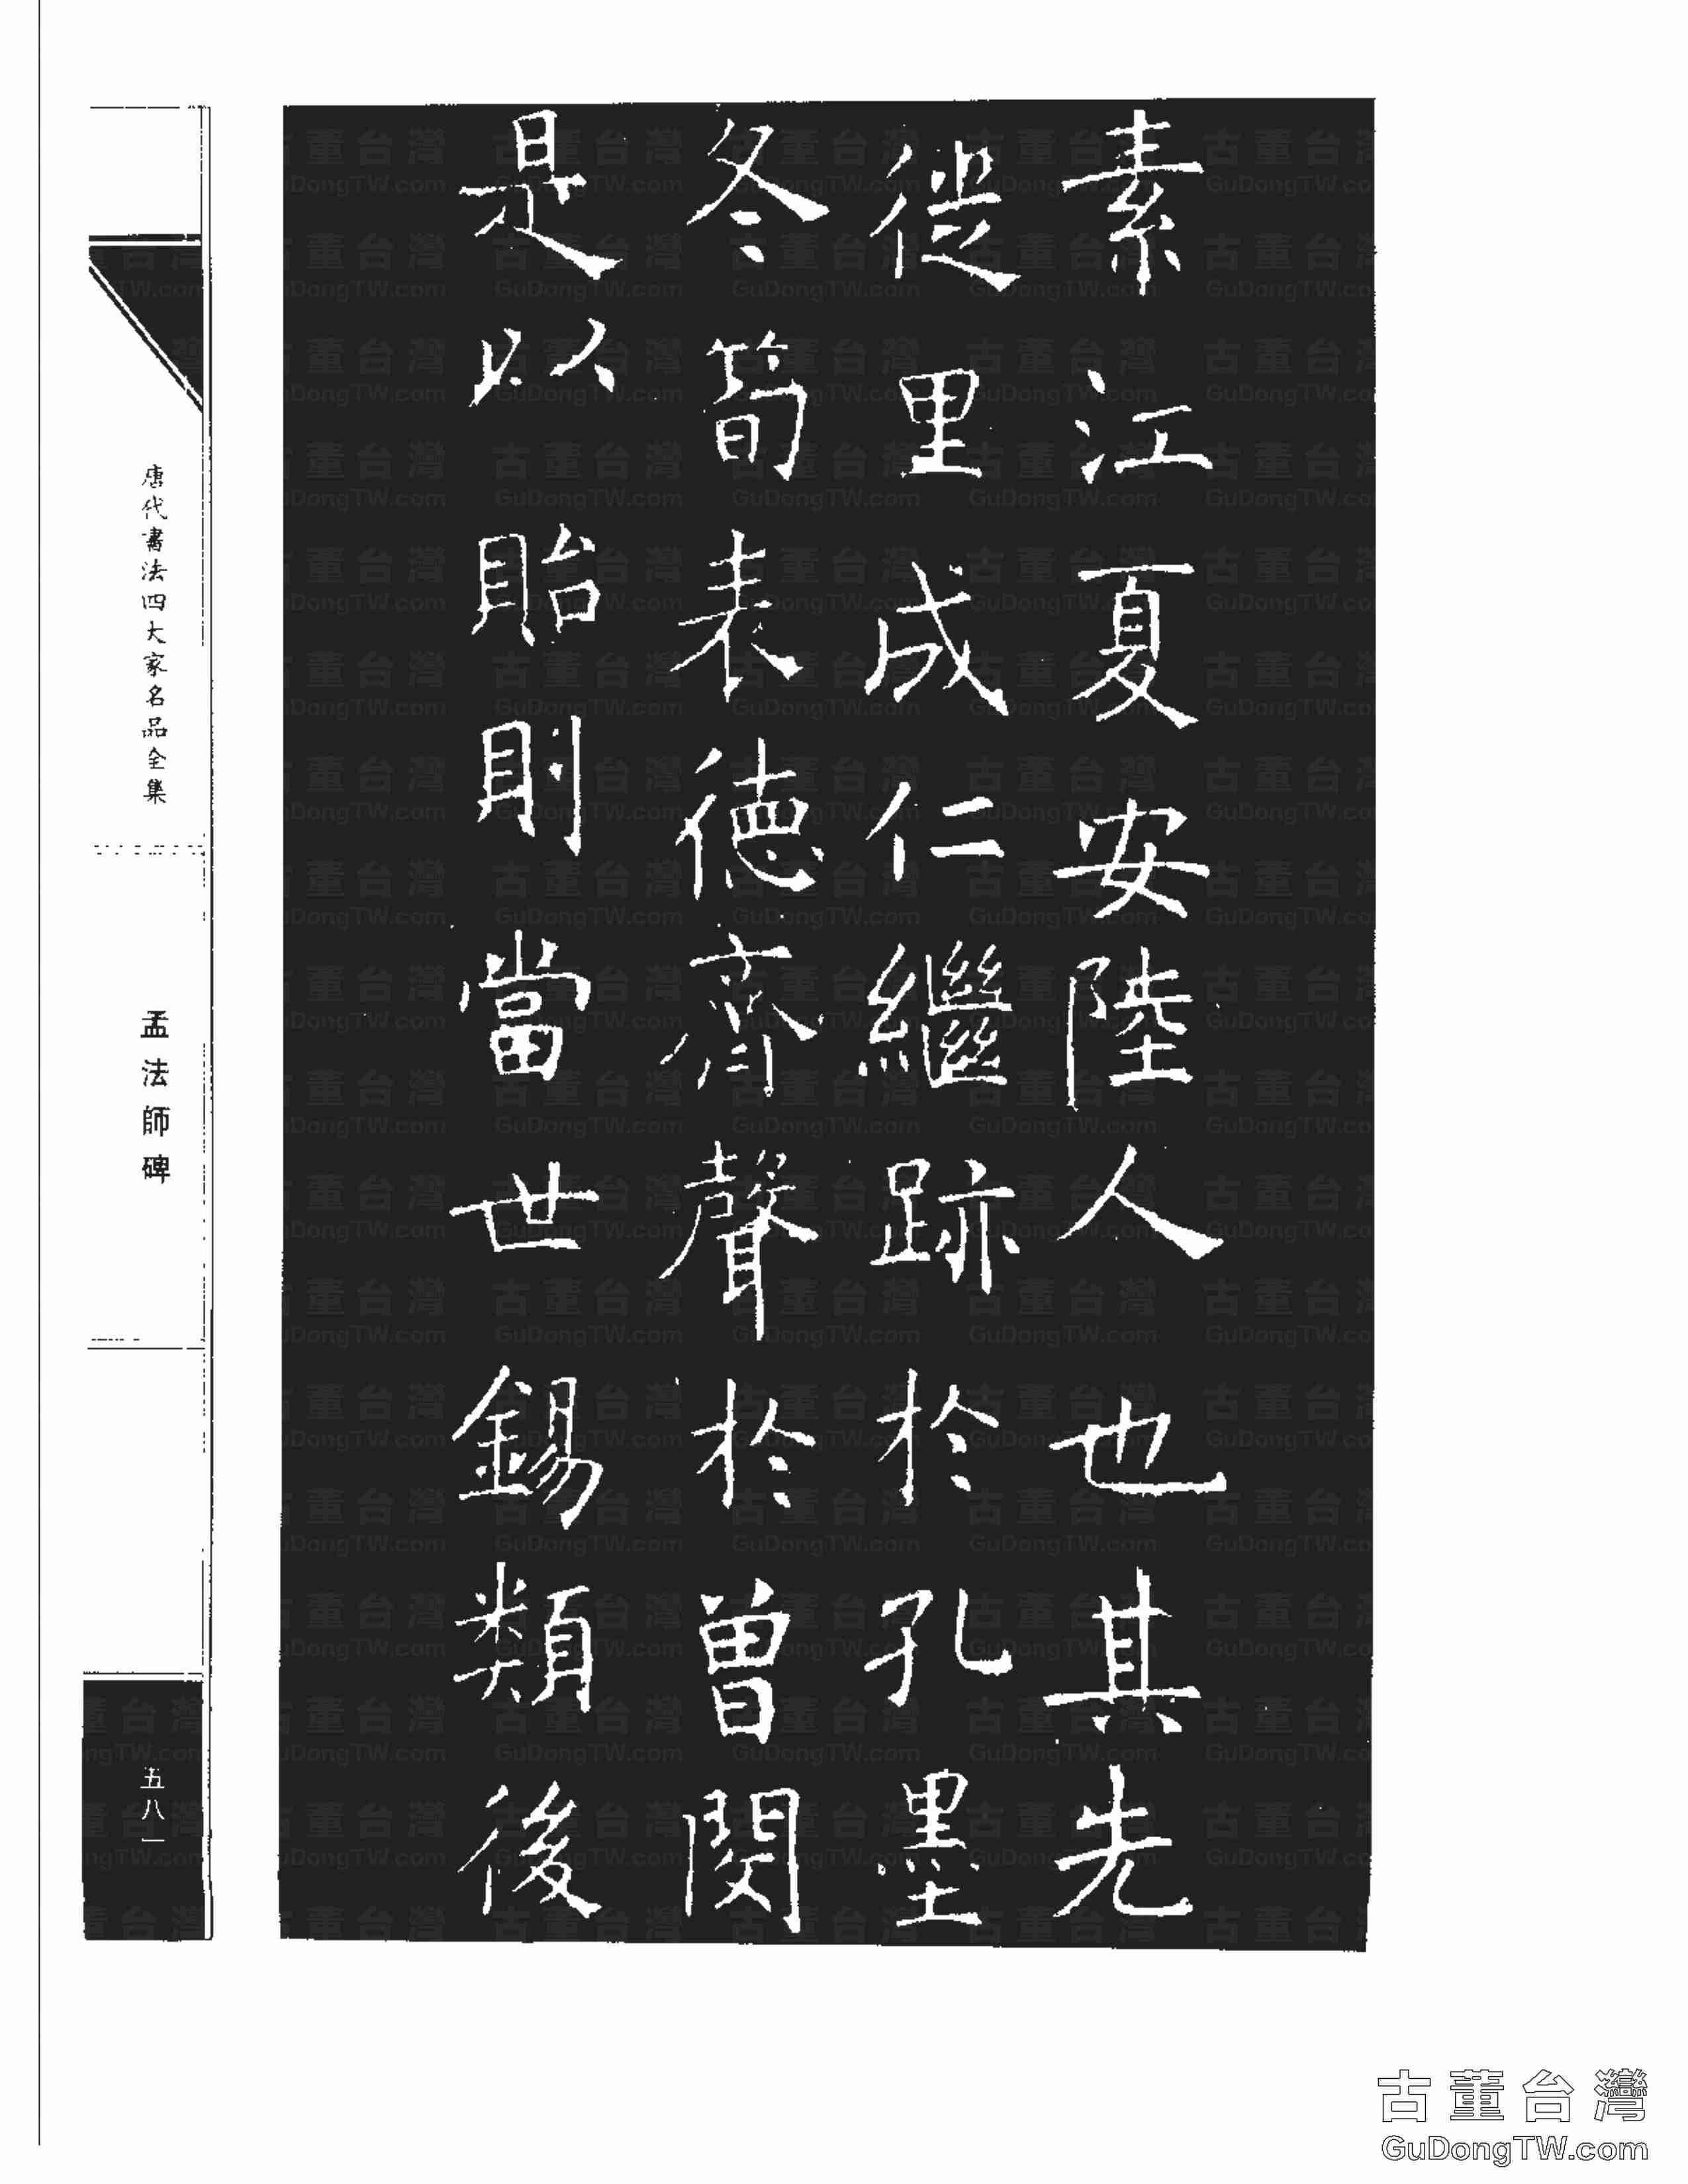 素江夏安陸人也其先
徙里成仁繼跡於孔墨
冬筍表德齊聲於曾閔
是以貽則當世錫類後
唐代書法四大家名品全集
孟法師碑
五八一
古董台灣
GuDongTW.com